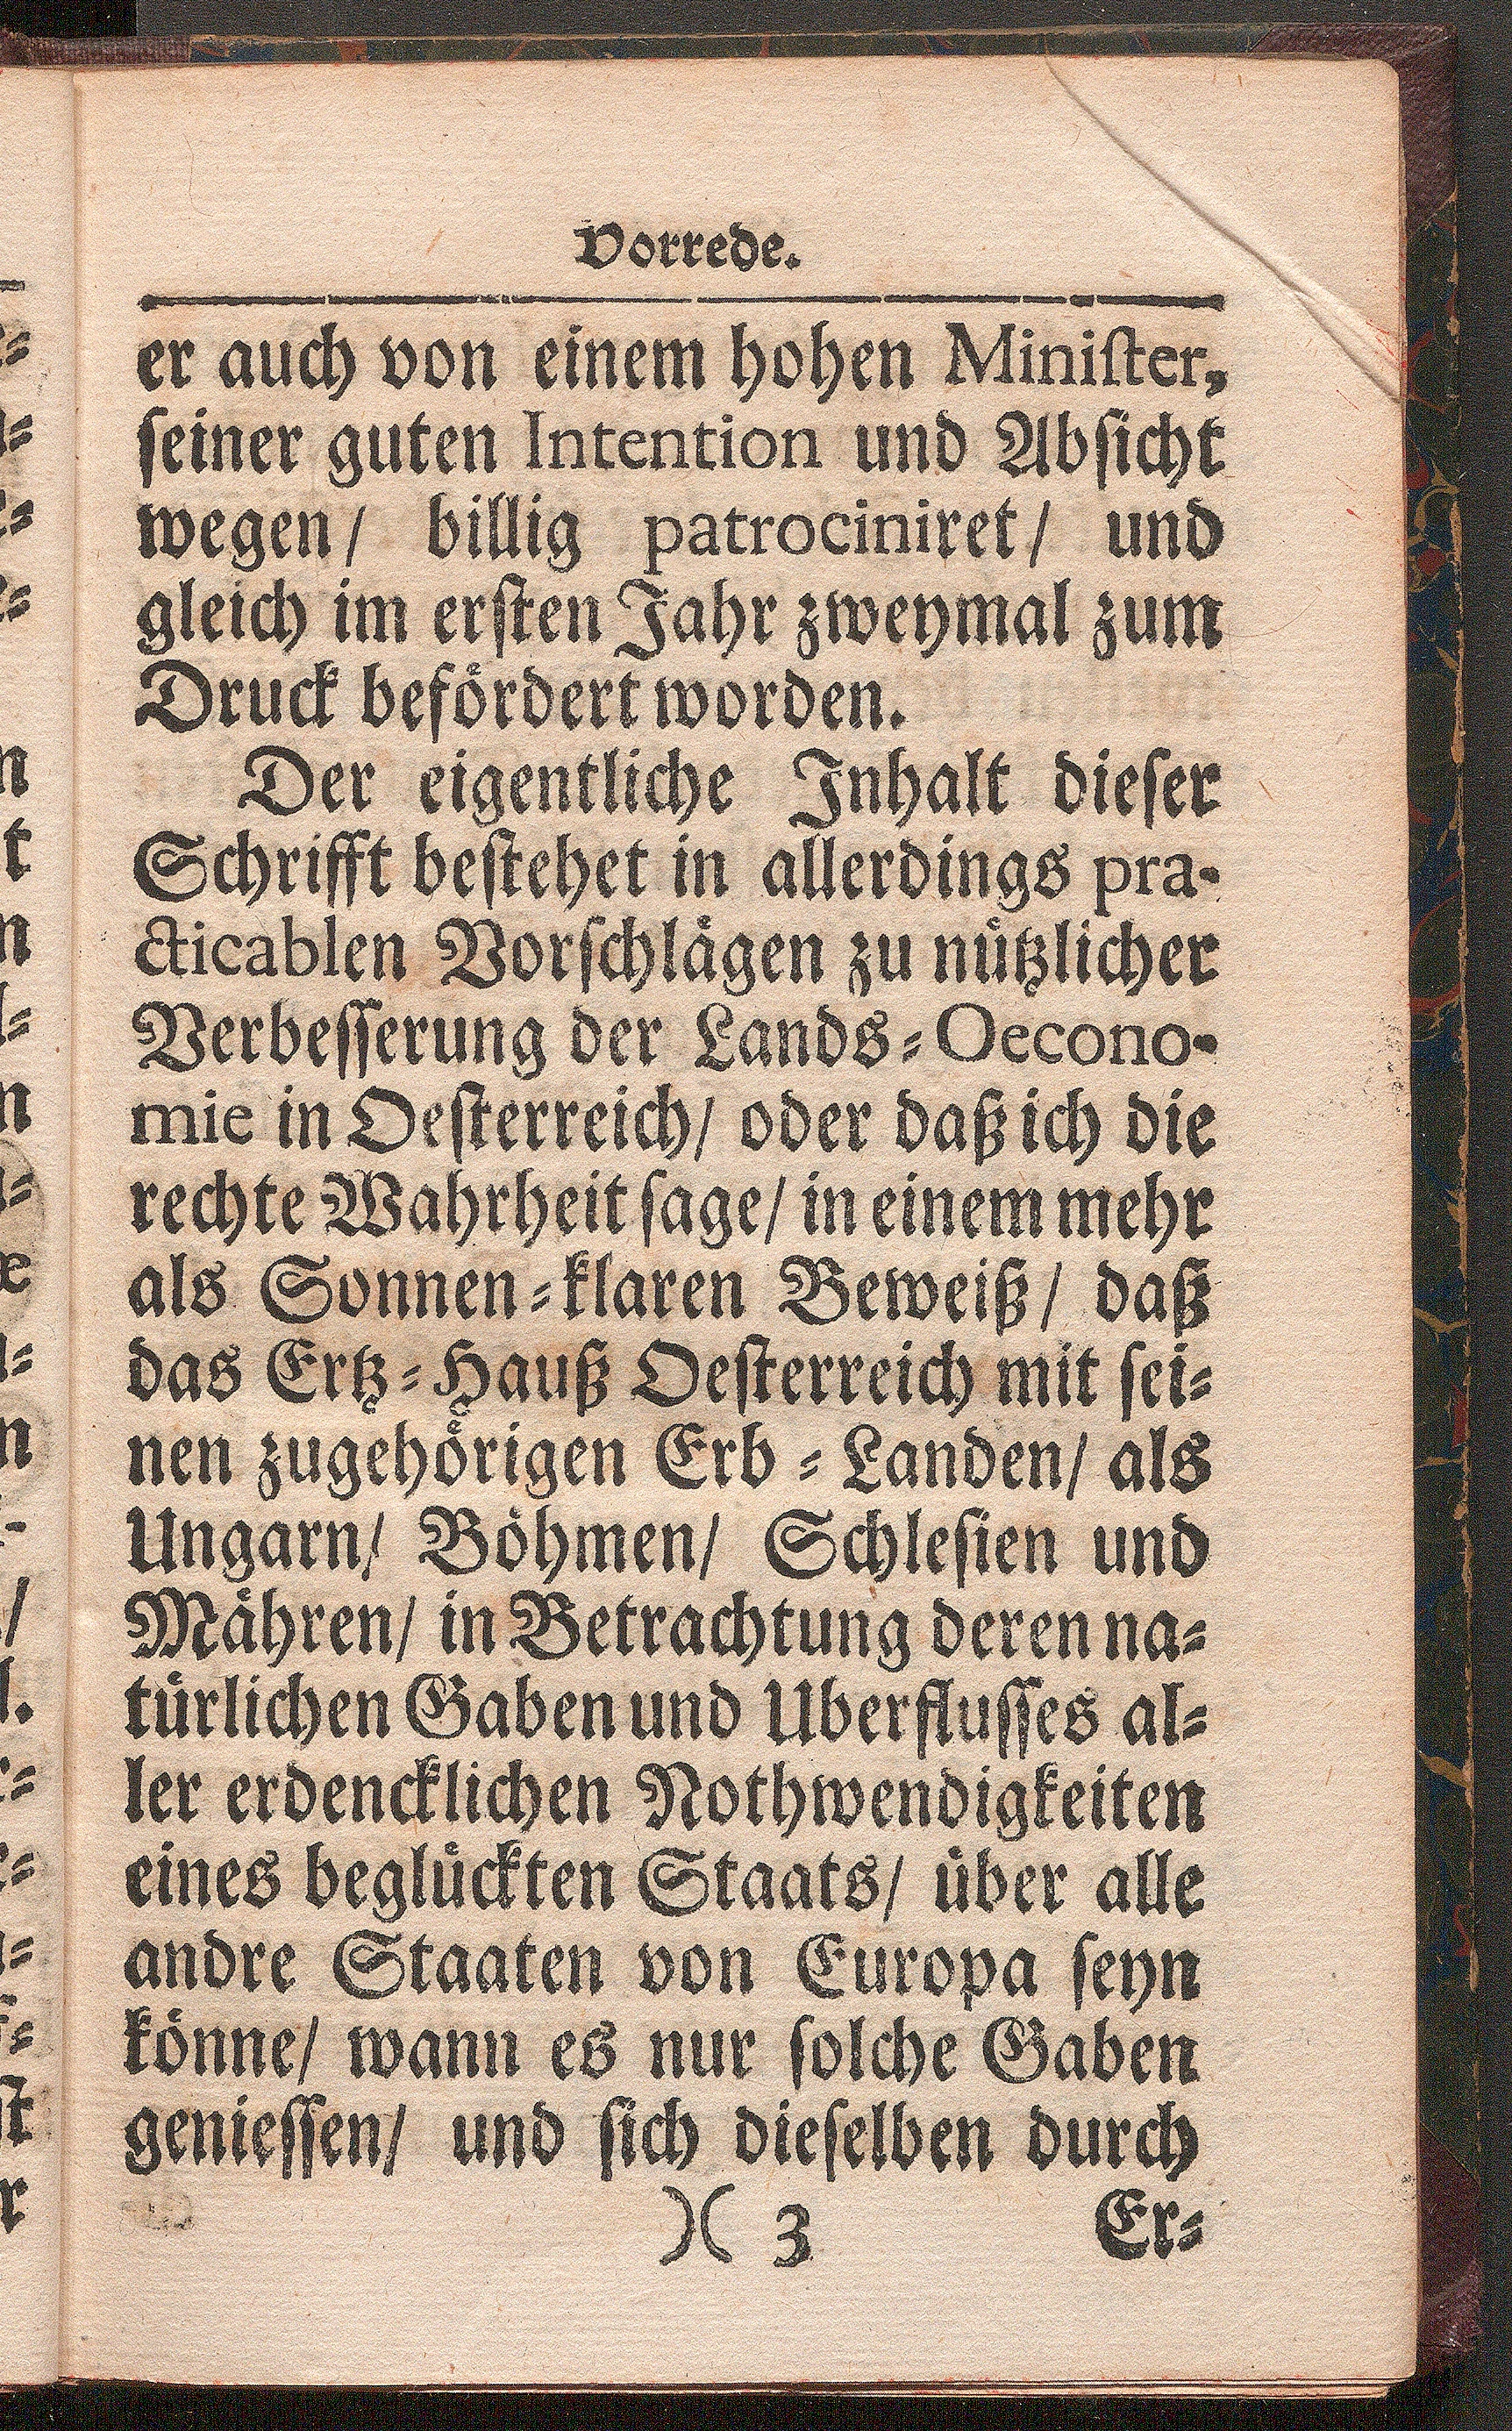 Vorrede.
er auch von einem hohen Miniſter,
ſeiner guten Intention und Abſicht
wegen/ billig patrociniret/ und
gleich im erſten Jahr zweymal zum
Druck befoͤrdert worden.
Der eigentliche Inhalt dieſer
Schrifft beſtehet in allerdings pra-
cticablen Vorſchlaͤgen zu nuͤtzlicher
Verbeſſerung der Lands-Oecono-
mie in Oeſterreich/ oder daß ich die
rechte Wahrheit ſage/ in einem mehr
als Sonnen-klaren Beweiß/ daß
das Ertz-Hauß Oeſterreich mit ſei-
nen zugehoͤrigen Erb-Landen/ als
Ungarn/ Boͤhmen/ Schleſien und
Maͤhren/ in Betrachtung deren na-
tuͤrlichen Gaben und Uberfluſſes al-
ler erdencklichen Nothwendigkeiten
eines begluͤckten Staats/ uͤber alle
andre Staaten von Europa ſeyn
koͤnne/ wann es nur ſolche Gaben
genieſſen/ und ſich dieſelben durch
)( 3 Er-